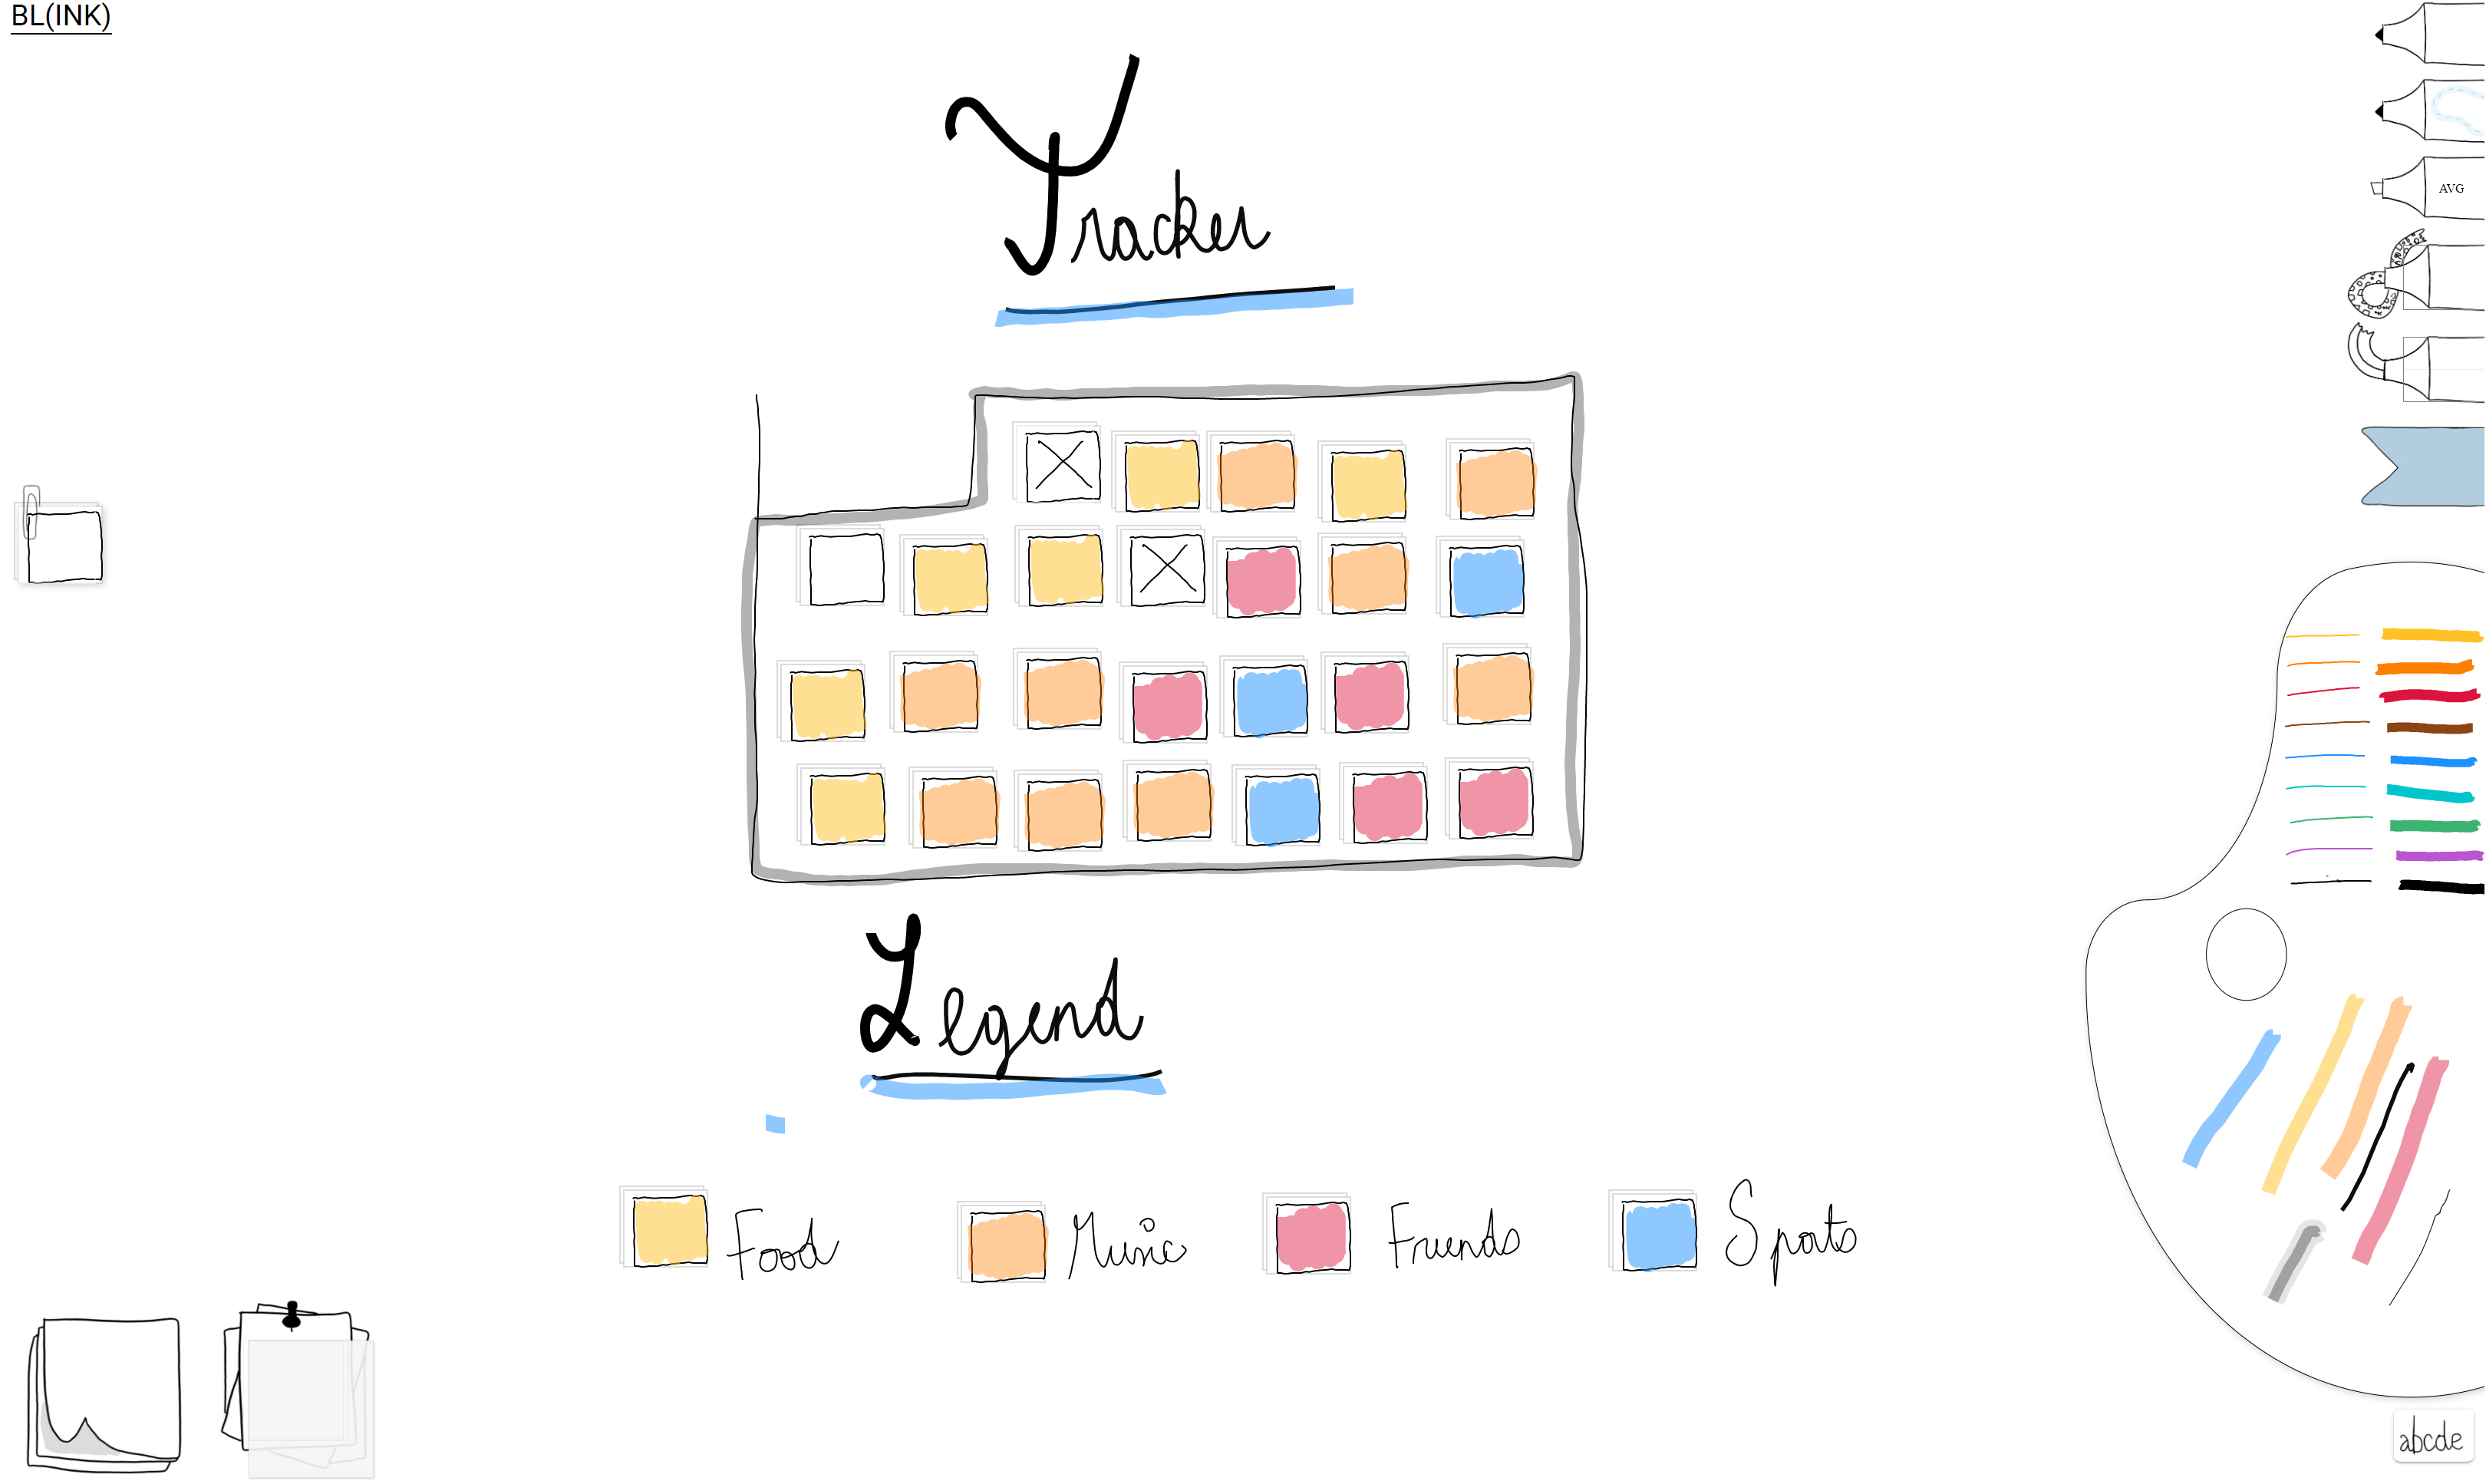 BL(INK)
AVG
Tracker
Legend
Food Music Friends Sports
abcde